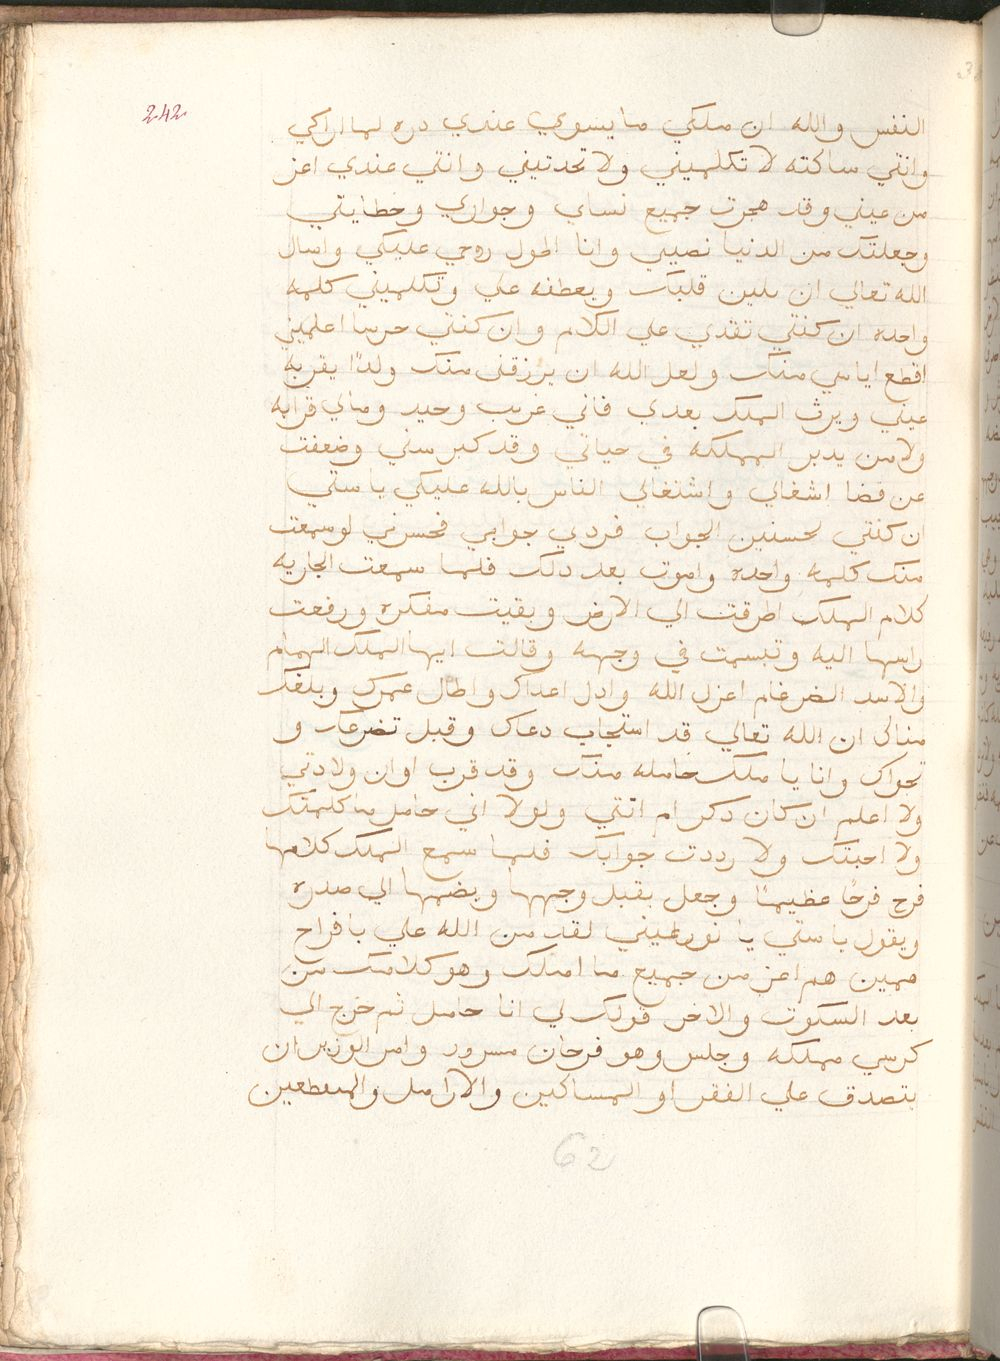 242
النفس والله ان ملكي ما يسوي عندي دره لما اراكي
وانتي ساكته لا تكلميني ولا تحدتيني وانتي عندي اعز
من عيني وقد هجرت جميع نساي وجواري وحظايتي
وجعلتك من الدنيا نصيبي وانا اطول روحي عليكي واسال
الله تعالي ان يلين قلبك ويعطفه علي وتكلميني كلمه
واحده ان كنتي تقدي علي الكلام وان كنتي خرسا اعلميني
اقطع اياسي منك ولعل الله ان يرزقني منك ولدًا يقر به
عيني ويرث الملك بعدي فاني غريب وحيد ومالي قرابه
ولا من يدبر المملكه في حياتي وقد كبر سني وضعفت
عن قضا اشغالي واشتغالي الناس بالله عليكي يا ستي
ان كنتي تحسنين الجواب فردي جوابي فحسرتي لو سمعت
منك كلمه واحده واموت بعد دلك فلما سمعت الجاريه
كلام الملك اطرقت الي الارض وبقيت مفكره ورفعت
راسها اليه وتبسمت في وجهه وقالت ايها الملك الهمام
والاسد الضرغام اعزك الله وادل اعداك واطال عمرك وبلغك
مناك ان الله تعالي قد استجاب دعاك وقبل تضرعك و
نجواك وانا يا ملك حامله منك وقد قرب اوان ولادتي
ولا اعلم ان كان دكر ام انتي ولولا اني حامل ما كلمتك
ولا اجبتك ولا رددت جوابك فلما سمع الملك كلامها
فرح فرحًا عظيمًا وجعل يقبل وجهها ويضمها الي صدره
ويقول يا ستي يا نور عيني لقد من الله علي بافراح
همين هم اعز من جميع ما املك وهو كلامك من
بعد السكوت والاخر قولك لي انا حامل ثم خرج الي
كرسي مملكه وجلس وهو فرحان مسرور وامر الوزير ان
يتصدق علي الفقرا والمساكين والارامل والمنقطعين
62